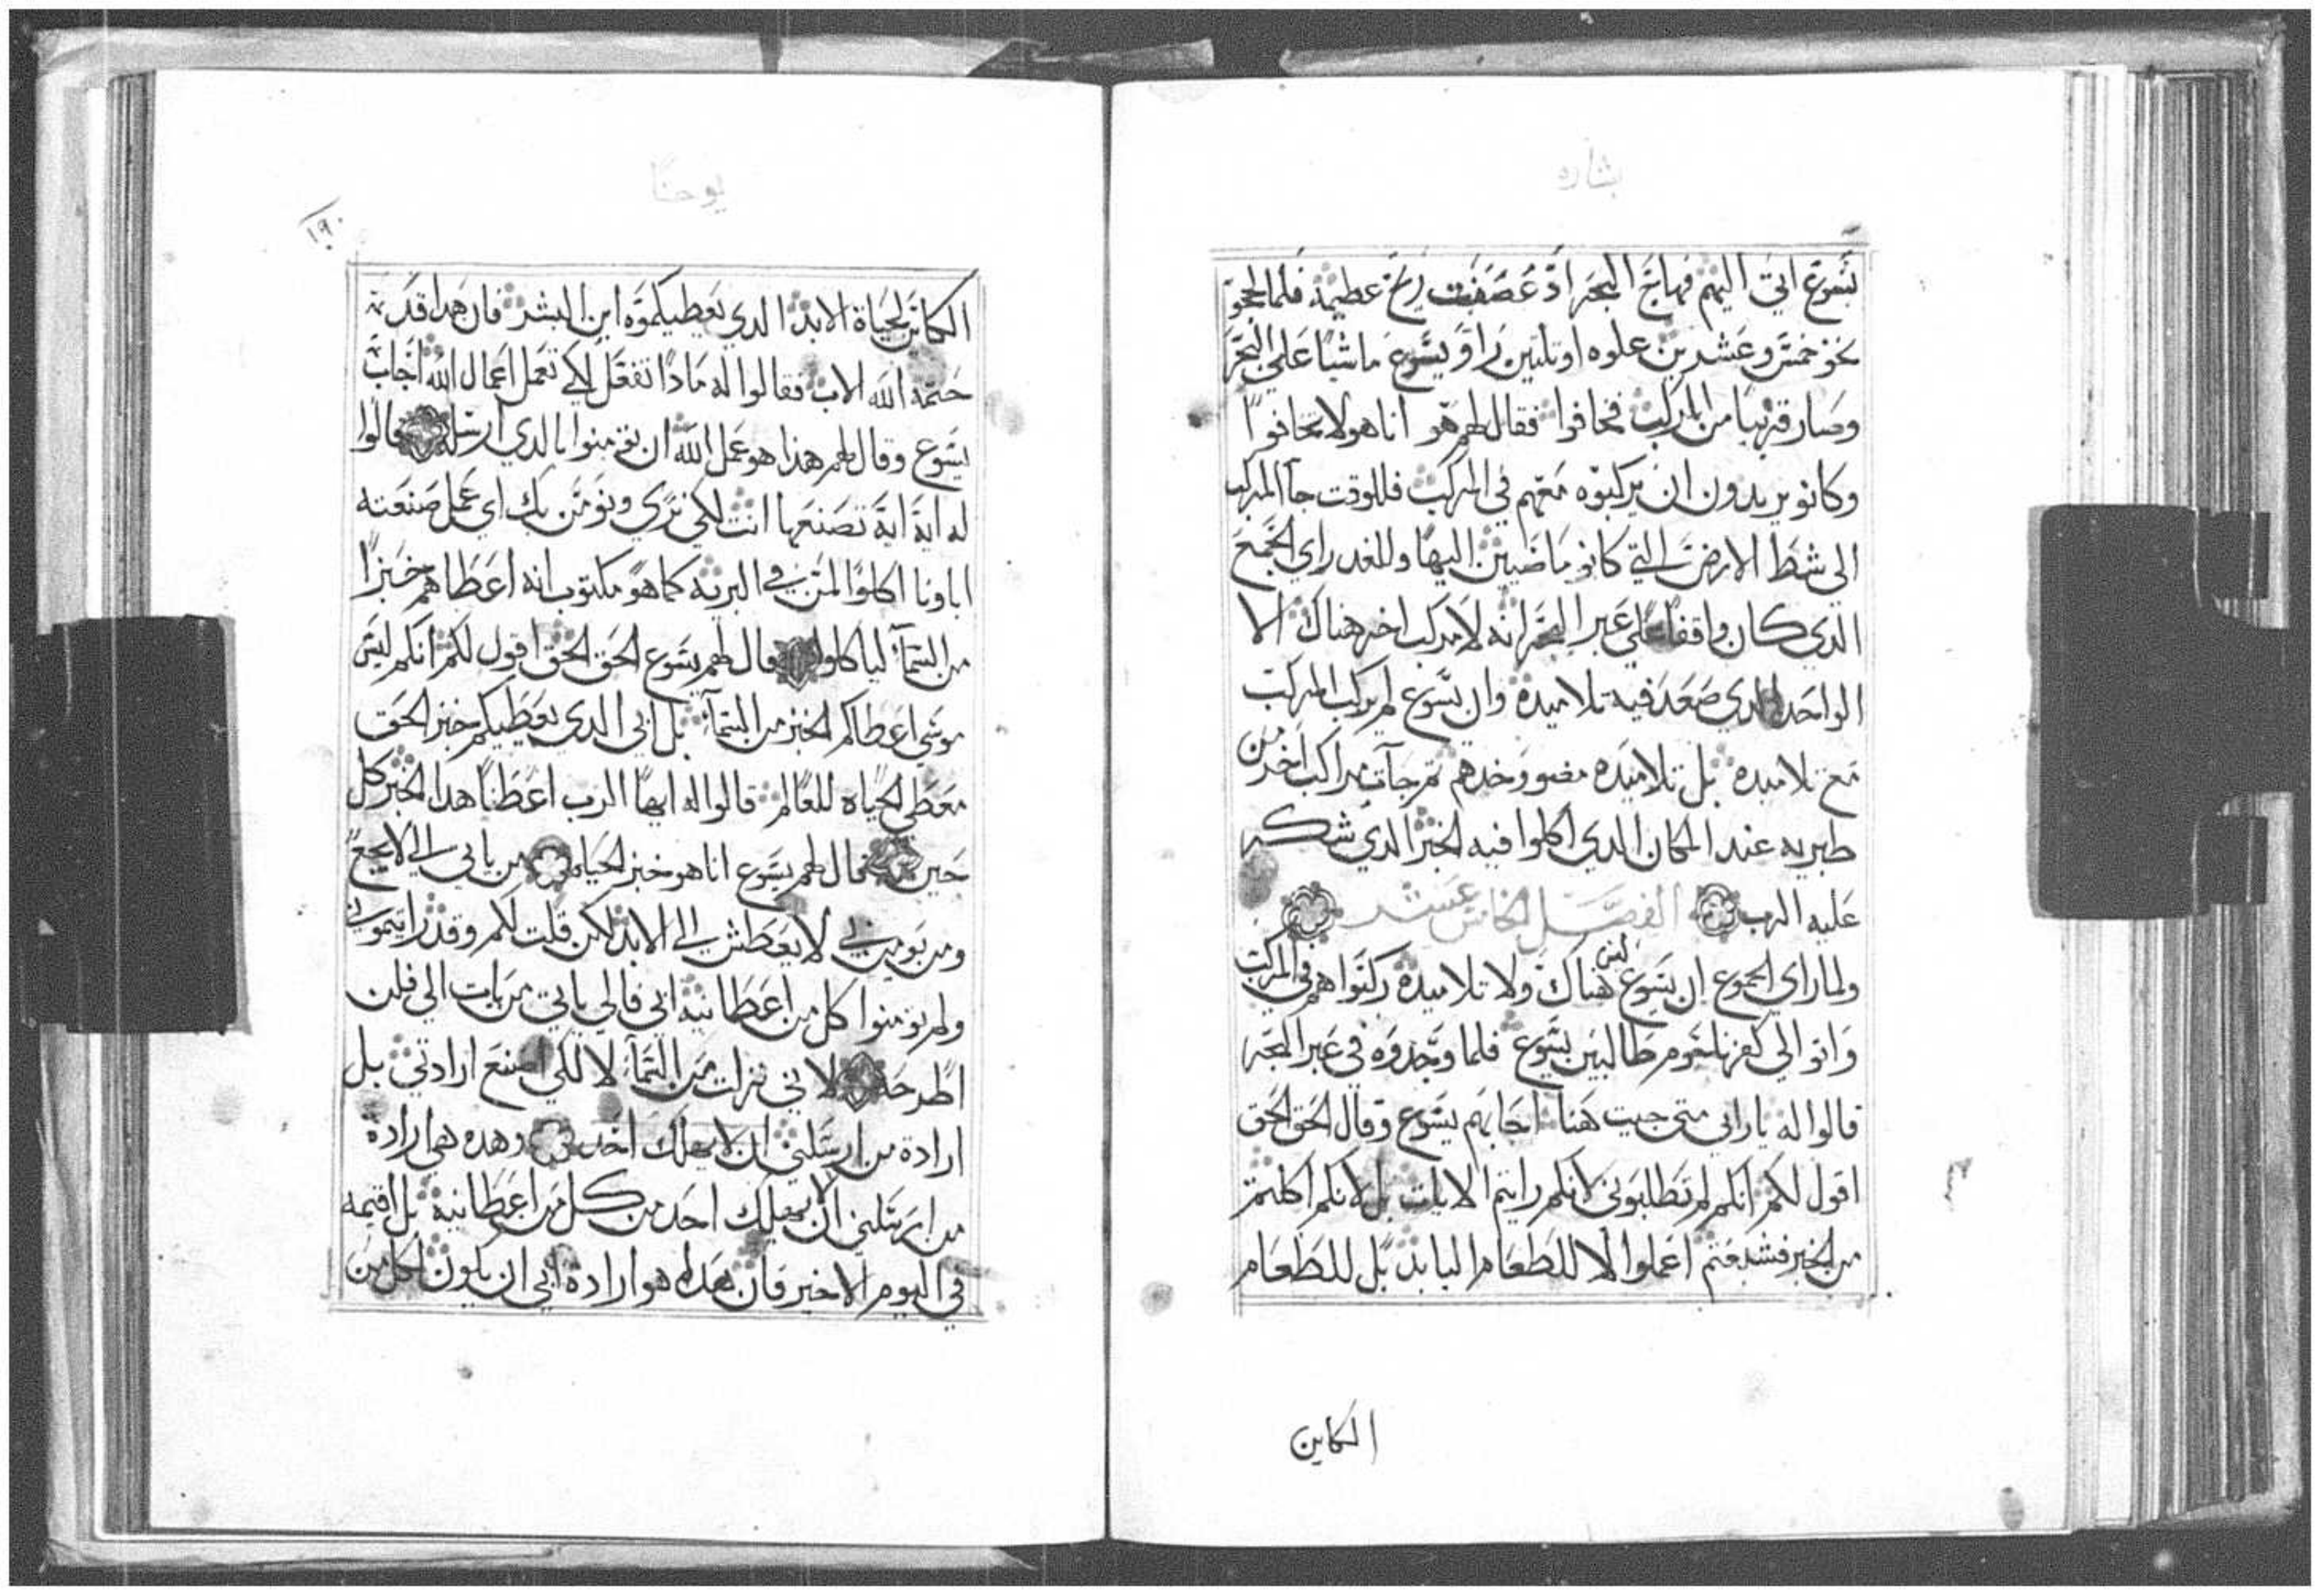 بشاره
يسوع اتي اليهم فهاج البحر اد عصفت ريح عظيمة فلما لججو
نحو خمس وعشرين علوه او تلتين راو يسوع ماشيا علي البحر
وصار قريبا من المركب فخافوا فقال لهم هو انا هو لا تخافوا
وكانو يريدون ان يركبوه معهم في المركب فللوقت جآ المركب
الي شط الارض التي كانو ماضيين اليها وللغد راي الجمع
الدي كان واقفا علي عبر البحر انه لا مركب اخر هناك الا
الواحد الدي صعد فيه تلاميده وان يسوع لم يركب المركب
مع تلاميده بل تلاميده مضو وحدهم تم جآت مراكب اخر من
طبريه عند المكان الدي اكلوا فيه الخبز الدي شكر
عليه الرب الفصل الخامس عشر
ولما راي الجموع ان يسوع ليس هناك ولا تلاميده ركبوا هم في المركب
واتوا الي كفرناحوم طالبين يسوع فلما وجدوه في عبر البحر
قالوا له يارابي متي جيت هنا اجابهم يسوع وقال الحق الحق
اقول لكم انكم لم تطلبوني لانكم رايتم الايات بل لانكم اكلتم
من الخبز فشبعتم اعملوا لا للطعام البايد بل للطعام
الكاين
يوحنا
١٩٠
الكاين لحياة الابد الدي يعطيكموه ابن البشر فان هدا قد
ختمه الله الاب فقالوا له مادا نفعل لكي نعمل اعمال الله اجاب
يسوع وقال لهم هذا هو عمل الله ان تومنوا بالدي ارسله قالوا
له اية اية تصنعها انت لكي نري ونومن بك اي عمل صنعته
اباونا اكلوا المن في البريه كما هو مكتوب انه اعطاهم خبزا
من السمآء لياكلوا قال لهم يسوع الحق الحق اقول لكم انكم ليس
موسي اعطاكم الخبز من السمآء بل ابي الدي يعطيكم خبز الحق
معطي الحياه للعالم قالوا له ايها الرب اعطنا هدا الخبز كل
حين قال لهم يسوع انا هو خبز الحياه من ياتي الي لا يجع
ومن يومن بي لا يعطش الي الابد لكن قلت لكم وقد رايتموني
ولم تومنوا كل من اعطانيه ابي فالي ياتي من يات الي فلن
اطرحه لاني نزلت من السمآء لا لكي اصنع ارادتي بل
ارادة من ارسلني ان لا يهلك احد وهده هي ارادة
من ارسلني ان لا يهلك احد من كل من اعطانيه بل اقيمه
في اليوم الاخير فان هدا هو ارادة ابي ان يكون لكل من